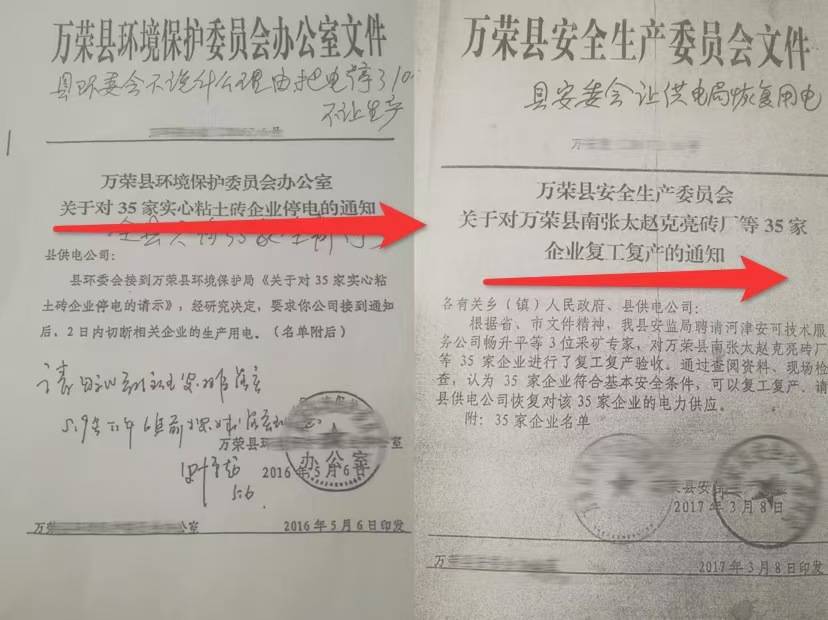 万荣县环境保护委员会办公室文件
县环委会不说什么理由把电停了10
不让生产
万荣县环境保护委员会办公室
关于对 35 家实心粘土砖企业停电的通知
县供电公司：
县环委会接到万荣县环境保护局《关于对 35 家实心粘
土砖企业停电的请示》，经研究决定，要求你公司接到通知
后，2 日内切断相关企业的生产用电。（名单附后）
万荣县环
室
2016 年 5 月 6 日
办公室
5.6
万
室
2016 年 5 月 6 日印发
万荣县安全生产委员会文件
县安委会让供电局恢复用电
万荣县安全生产委员会
关于对万荣县南张太赵克亮砖厂等 35 家
企业复工复产的通知
各有关乡（镇）人民政府、县供电公司：
根据省、市文件精神，我县安监局聘请河津安可技术服
务公司畅升平等 3 位采矿专家，对万荣县南张太赵克亮砖厂
等 35 家企业进行了复工复产验收。通过查阅资料、现场检
查，认为 35 家企业符合基本安全条件，可以复工复产、请
县供电公司恢复对该 35 家企业的电力供应。
附：35 家企业名单
荣县安
2017 年 3 月 8 日
万
2017 年 3 月 8 日印发